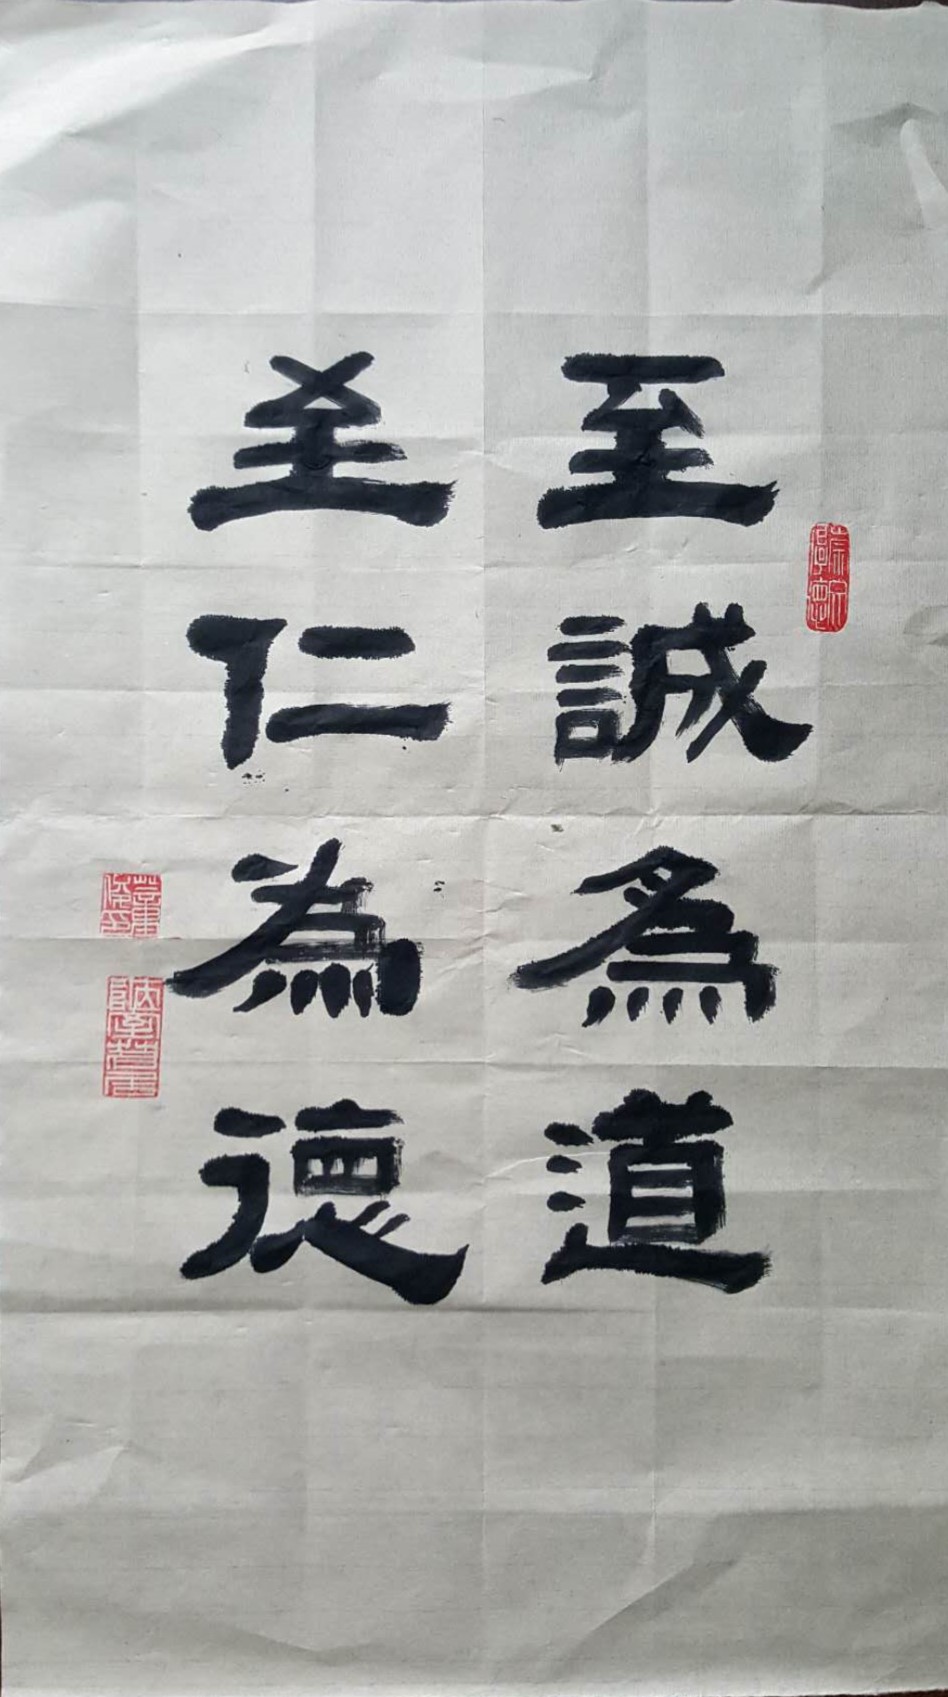 至誠為道
至仁為德